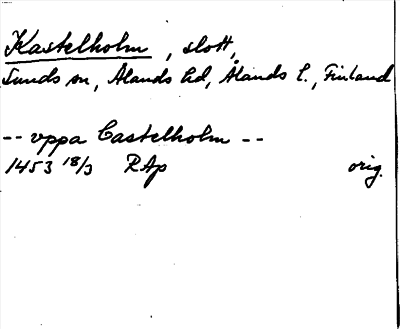 Kastelholm, slott,
Sunds sn, Ålands hd, Ålands l., Finland
-- vppa Castelholm --
1453 18/3 RAp orig.